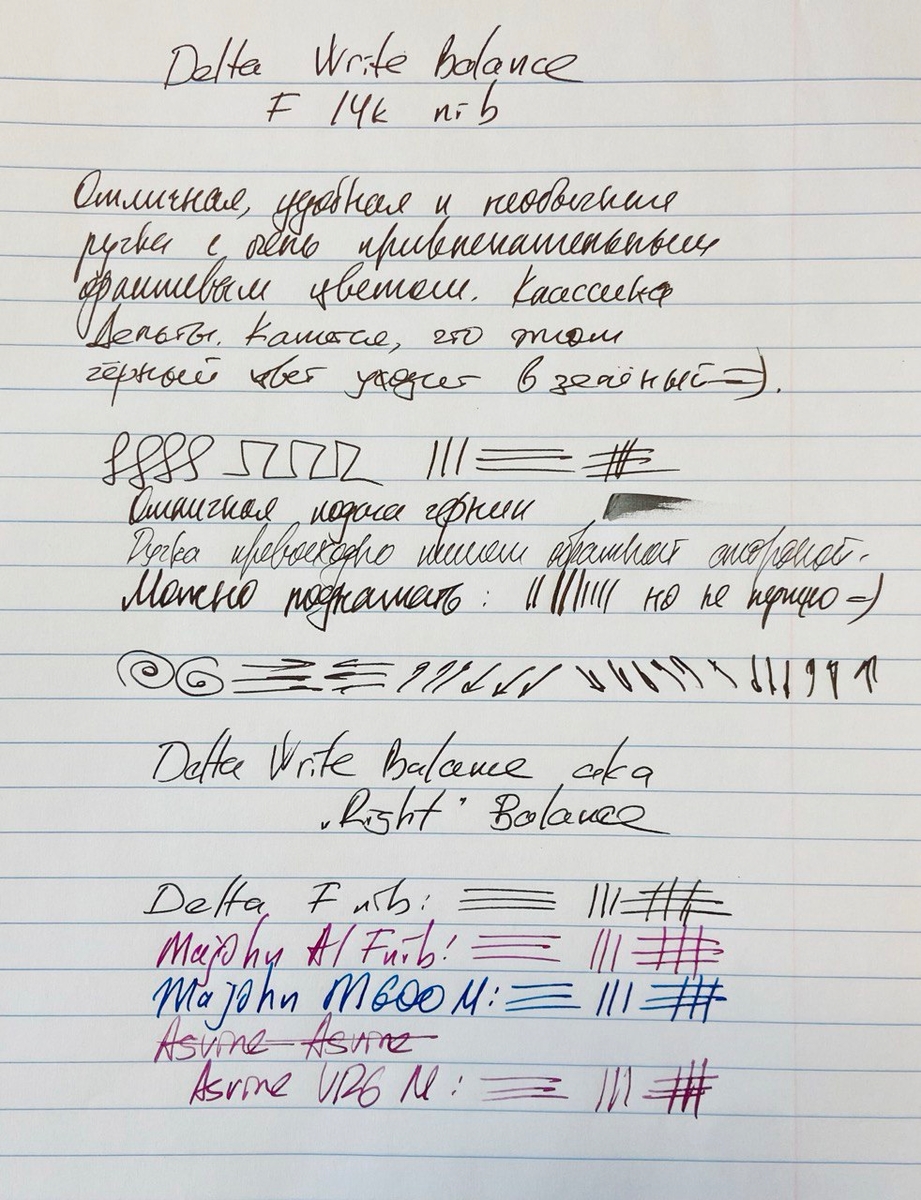 Delta Write Balance
F 14k nib
Отличная, удобная и необычная
ручка с очень привлекательным
оранжевым цветом. Классика
Дельты. Кажется, что этот
чёрный цвет уходит в зелёный =).
Отличная подача чернил
Ручка превосходно пишет обратной стороной.
Можно поднажать: но не нужно =)
Delta Write Balance aka
„Right" Balance
Delta F nib:
Majohn A1 F nib:
Majohn M600 M:
Asvine Asvine
Asvine V126 M: